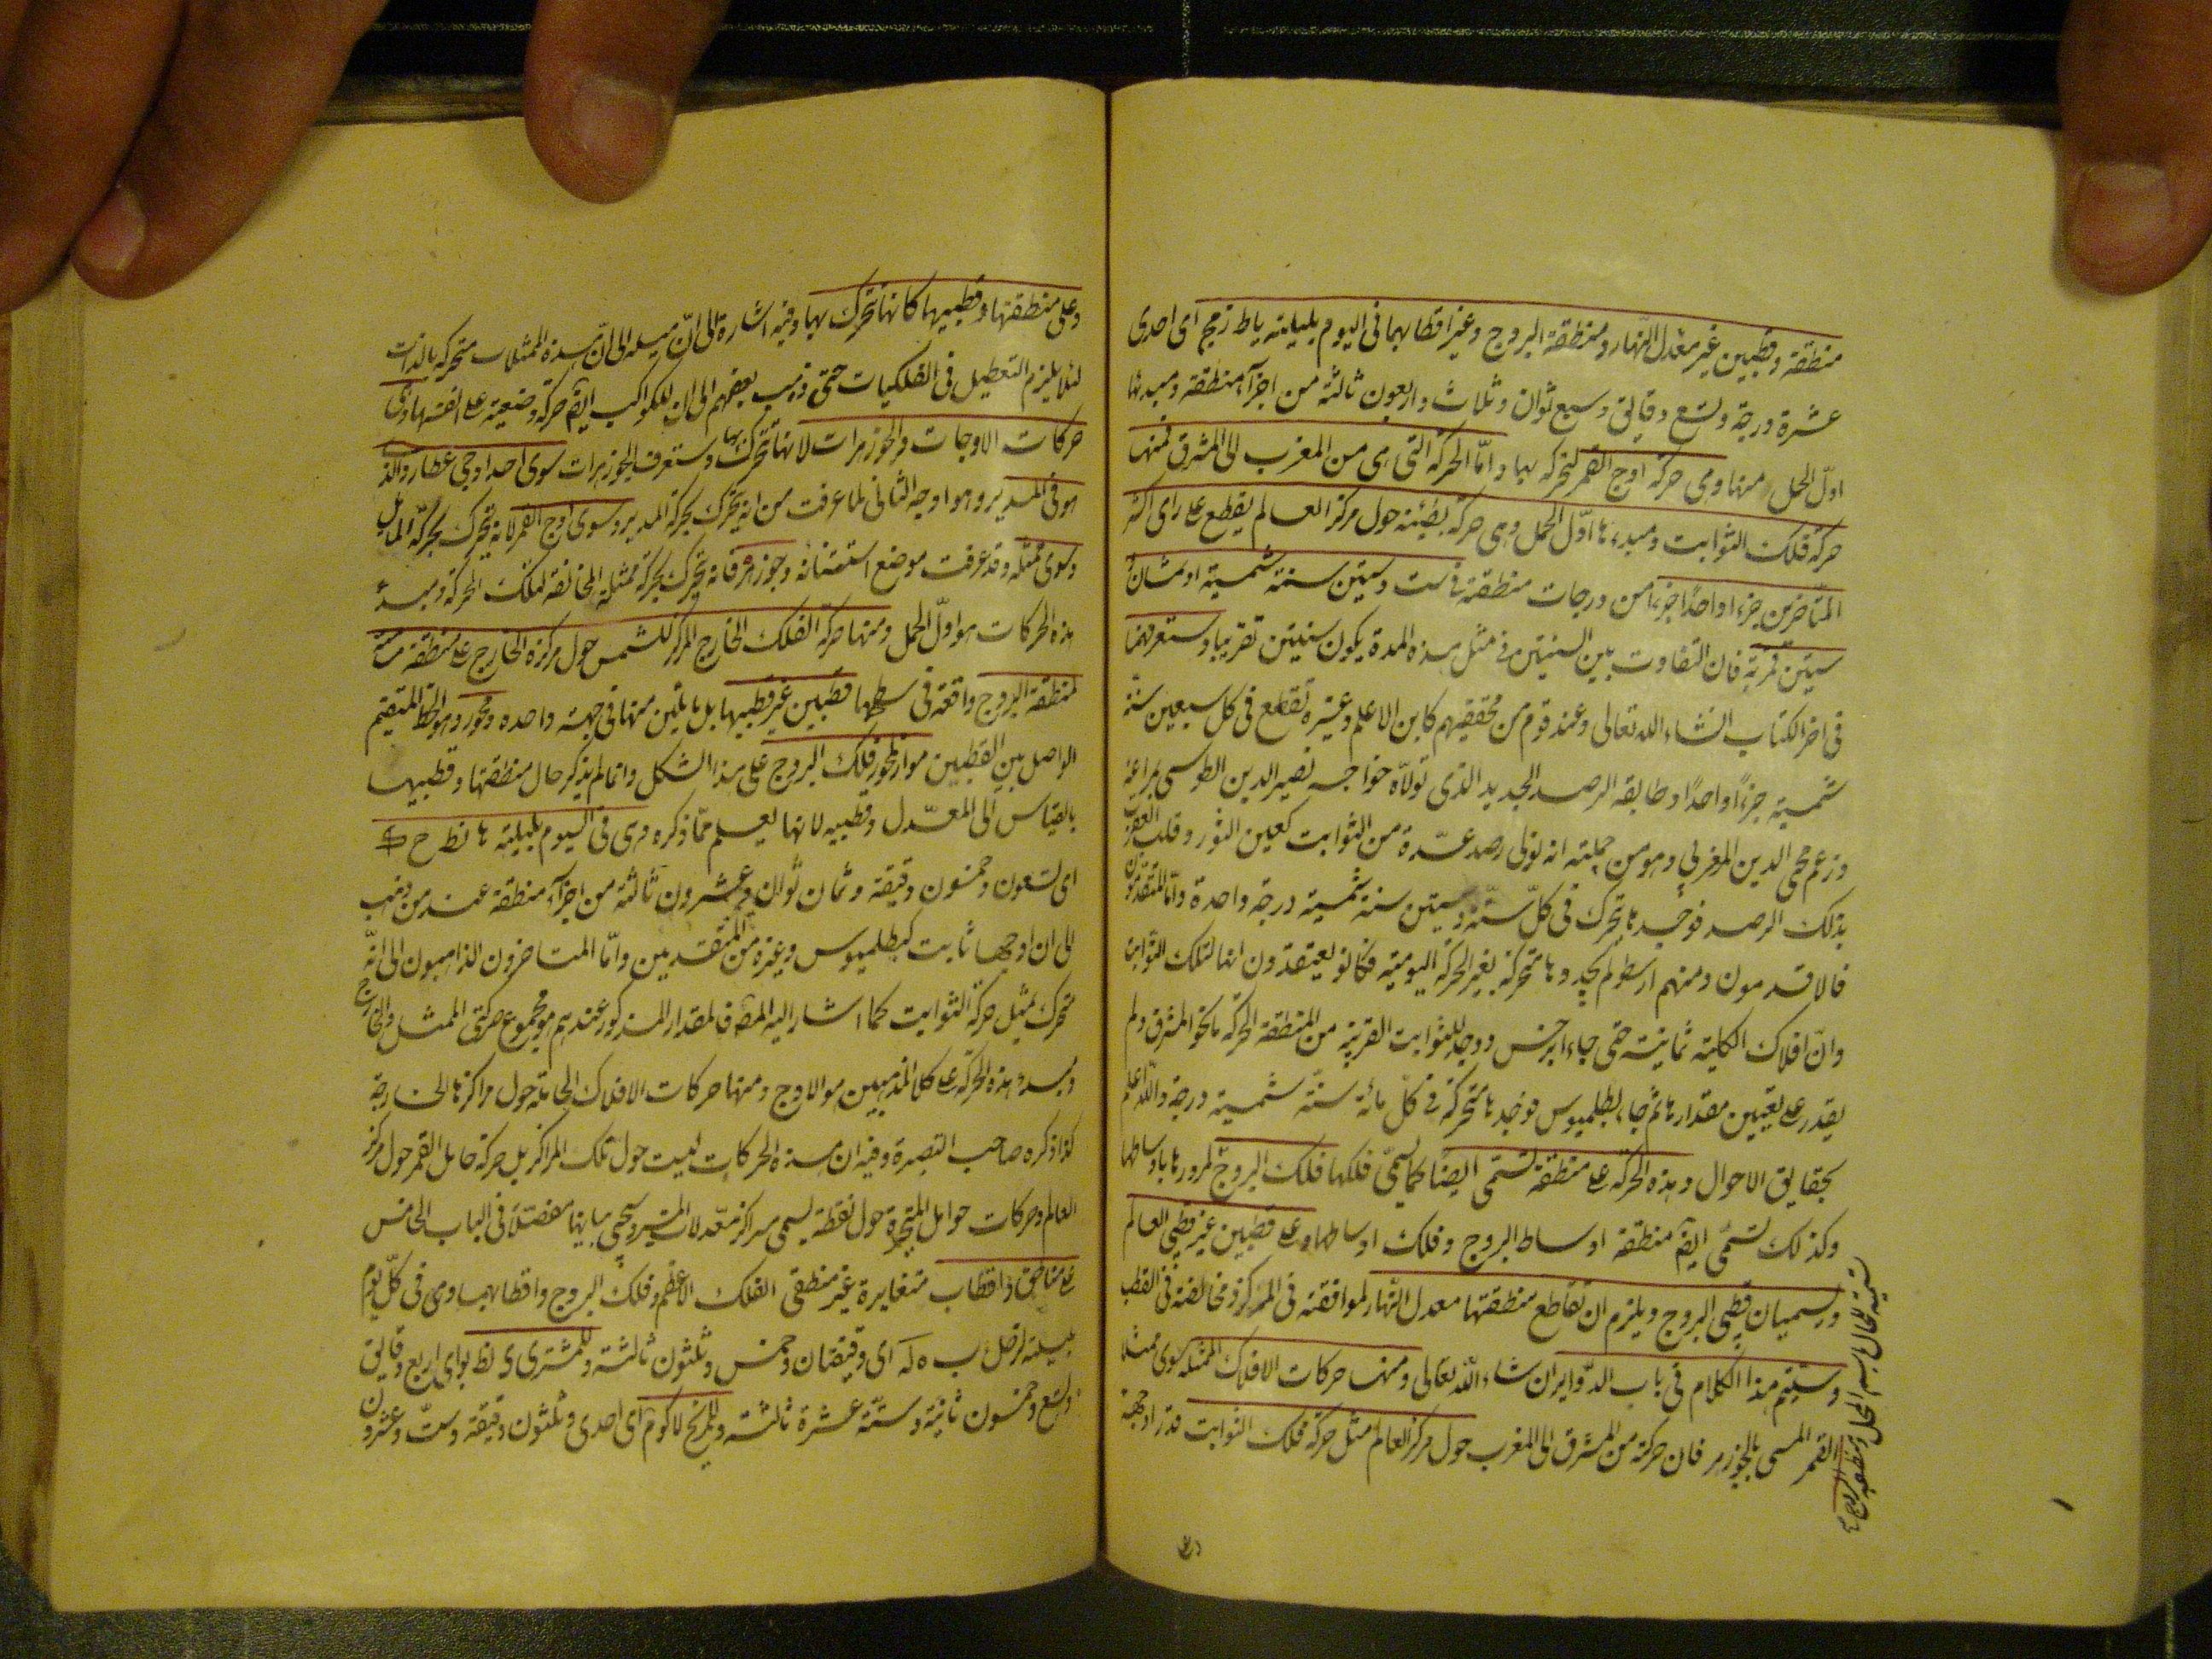 منطقة وقطبين غير معدل النهار ومنطقة البروج وغير اقطابهما فى اليوم بليلته ياط زمج اى احدى
عشرة درجة وتسع دقائق وسبع ثوان وثلاث واربعون ثالثة من اجزاء منطقة ومبدئها
اول الحمل ومنها ومى حركة اوج القمر لتحركه بها واما الحركة التى هى من المغرب الى المشرق فمنها
حركة فلك الثوابت ومبدءها اول الحمل وهى حركة بطيئة حول مركز العالم يقطع على راى اكثر
المتأخرين جزءا واحدا جزءا من درجات منطقة فى ست وستين سنة شمسية او ثمان و
ستين قمرية فان التفاوت بين السنتين فى مثل هذه المدة يكون سنتين تقريبا وستعرفهما
فى اخر الكتاب انشاء الله تعالى وعند قوم من محققيهم كابن الاعلم وغيره تقطع فى كل سبعين سنة
شمسية جزءا واحدا وطابقه الرصد الجديد الذى تولاه خواجه نصير الدين الطوسى بمراغة
وزعم محى الدين المغربى وهو من جملته انه تولى رصد عدة من الثوابت كعين الثور وقلب العقرب
بذلك الرصد فوجدها تتحرك فى كل ستة وستين سنة شمسية درجة واحدة واما المتقدمون
فالاقدمون ومنهم ارسطو لم يجدوها متحركة بغير الحركة اليومية فكانوا يعتقدون انها لتلك الثوابت
وان افلاك الكلية ثمانية حتى جاء ابرخس ووجد للثوابت القريبة من المنطقة الحركة ما نحو المشرق ولم
يقدر على تعيين مقدارها ثم جاء بطلميوس فوجدها متحركة فى كل مائة سنة شمسية درجة والله اعلم
بحقايق الاحوال وهذه الحركة على منطقة تسمى ايضا كما يسمى فلكها فلك البروج لمرورها باوساطها
وكذلك تسمى ايضا منطقة اوساط البروج وفلك اوساطها وعلى قطبين غير قطبى العالم
ويسميان قطبى البروج ويلزم ان تقاطع منطقتها معدل النهار لموافقته فى المركز ومخالفته فى القطب
وستتم هذا الكلام فى باب الدواير ان شاء الله تعالى ومنها حركات الافلاك الممثلة سوى ممثل
القمر المسمى بالجوزهر فان حركته من المشرق الى المغرب حول مركز العالم مثل حركة فلك الثوابت قدرا وجهة
تسمية للحال باسم المحل منطقة البروج
وعلى منطقتها وقطبيها كانها تتحرك بها وفيه اشارة الى ان ميله الى ان هذه الممثلات متحركة بالذات
لئلا يلزم التعطيل فى الفلكيات حتى ذهب بعضهم الى ان للكواكب ايضا حركة وضعية على انفسها وهى
حركات الاوجات والجوزهرات لانها تتحرك بها وستعرف الجوزهرات سوى احد اوجى عطارد الذى
هو فى المدير وهو اوجه الثانى لما عرفت من انه يتحرك بحركة المدير وسوى اوج القمر لانه يتحرك بحركة المايل
وسوى ممثله وقد عرفت موضع استثنائه وجوزهره فانه يتحرك بحركة ممثله المخالفة لتلك الحركة ومبدء
هذه الحركات هو اول الحمل ومنها حركة الفلك الخارج المركز للشمس حول مركزه الخارج على منطقة مسامتة
لمنطقة البروج واقعة فى سطحها قطبين غير قطبيها بل مايلين منها فى جهة واحدة ومحور وهو الخط المستقيم
الواصل بين القطبين مواز لمحور فلك البروج على هذا الشكل وانما لم يذكر حال منطقتها وقطبيها
بالقياس الى المعدل وقطبيه لانها تعلم مما ذكره وهى فى اليوم بليلته ها نط ح
اى تسعون وخمسون دقيقة وثمان ثوان وعشرون ثالثة من اجزاء منطقة عند من ذهب
الى ان اوجها ثابت كبطلميوس وغيره من المتقدمين واما المتاخرون الذاهبون الى انه
متحرك بمثل حركة الثوابت كما اشار اليه المص فالمقدار المذكور عندهم هو مجموع حركتى الممثل والخارج
ومبدء هذه الحركة على كلا المذهبين هو الاوج ومنها حركات الافلاك الحاملة حول مراكزها الخارجة
كذا ذكره صاحب التبصرة وفيه ان هذه الحركات ليست حول تلك المراكز بل حركة حامل القمر حول مركز
العالم وحركات حوامل المتحيرة حول نقطة يسمى مراكز معدلات المسير وسيجى بيانها مفصلا فى الباب الخامس
على مناطق واقطاب متغايرة غير منطقتى الفلك الاعظم وفلك البروج واقطابهما وهى فى كل يوم
بليلته لزحل ب ه له اى دقيقتان وخمس وثلثون ثالثة وللمشترى د نط يو اى اربع دقائق
وتسع وخمسون ثانية وستة عشرة ثالثة وللمريخ لا كو م اى احدى وثلثون دقيقة وست وعشرون